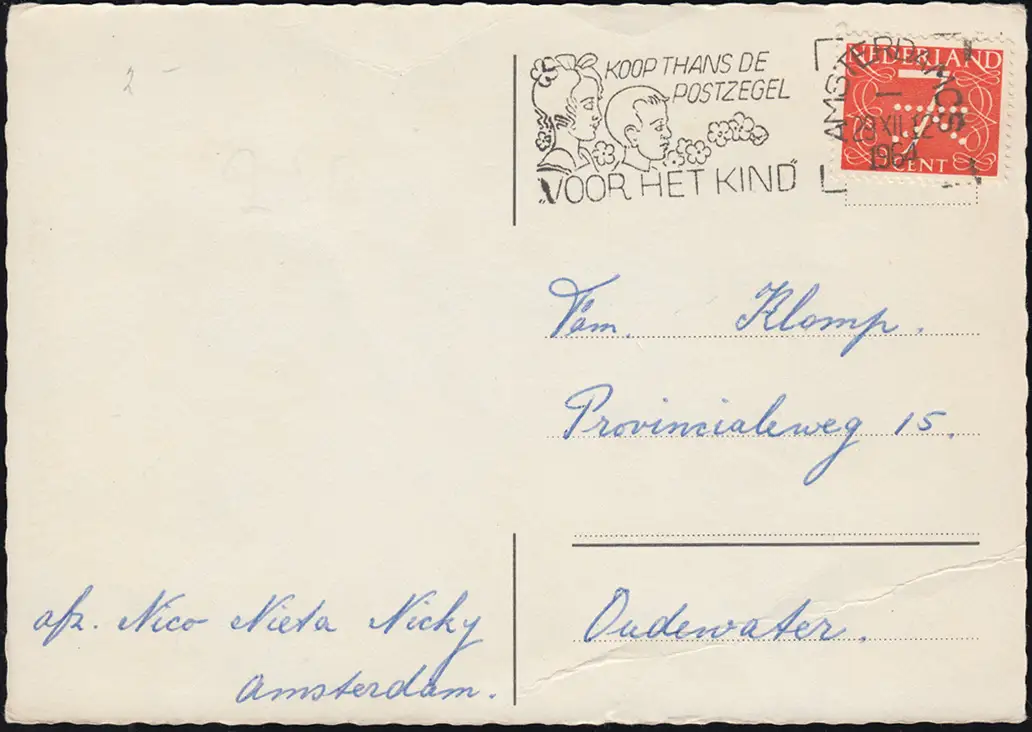 2-
KOOP THANS DE
POSTZEGEL
„VOOR HET KIND"
AMSTERDAM CS
1964
NEDERLAND
7
CENT
Fam. Klomp.
Provincialeweg 15.
Oudewater.
afz. Nico Nieta Nicky
Amsterdam.